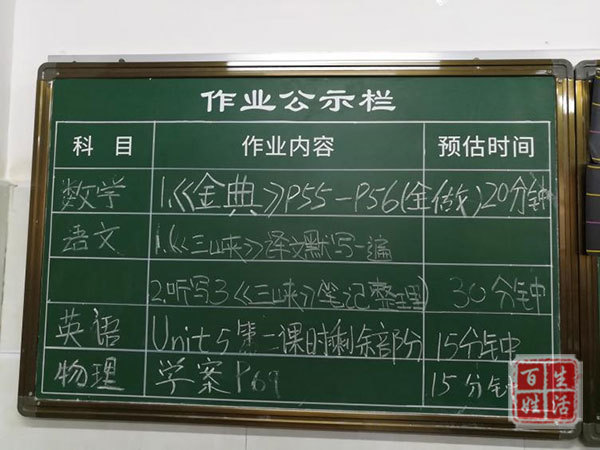 作业公示栏
科目 作业内容 预估时间
数学 1.《金典》P55-P56(全做) 20分钟
语文 1.《三峡》译文默写一遍
2.听写3《三峡》笔记整理 30分钟
英语 Unit5第二课时剩余部分 15分钟
物理 学案P69 15分钟
百姓生活